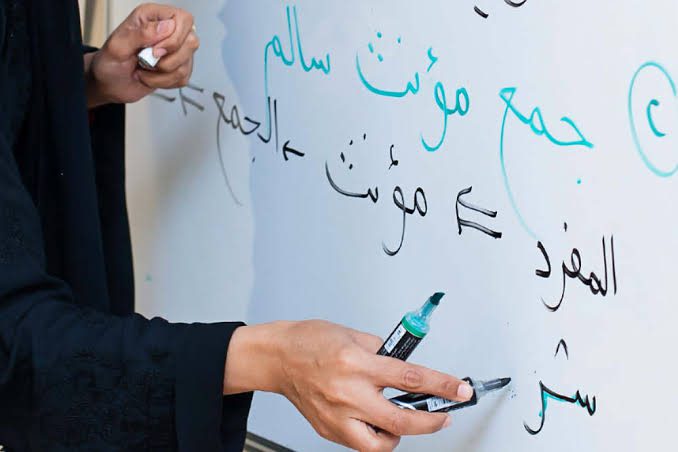 جمع مؤنث سالم
المفرد = مؤنث ← الجمع =